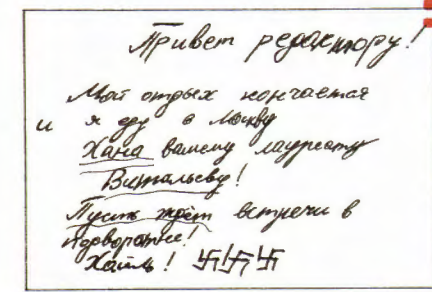 Привет редактору!
Мой отдых кончается
и я еду в Москву
Хана вашему лауреату
Витальеву!
Пусть ждёт встречи в
подворотне!
Хайль! 卐!卐卐